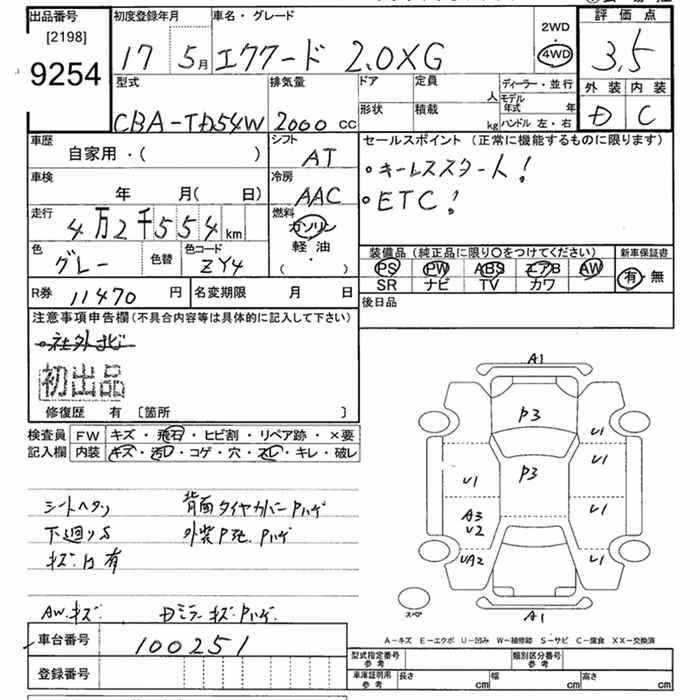 出品番号 初度登録年月 車名・グレード 2WD 評価点
[2198] 17 5月 エクワード 2.0XG 4WD 3.5
9254
型式 排気量 ドア 定員 人 ディーラー・並行 外装 内装
CBA-TD54W 2000 CC 形状 積載 kg モデル年式 年 D C
ハンドル 左・右
車歴 シフト セールスポイント (正常に機能するものに限ります)
自家用・( ) AT ・キーレススタート!
車検 冷房 ・ETC!
年 月(日) AAC
走行 燃料
4万2千554km ガソリン
色 色替 色コード 軽油・
グレー ZY4 ( )
装備品 (純正品に限り〇をつけてください) 新車保証書
PS PW ABS エアB AW 有・無
SR ナビ TV カワ
R券 11470 円 名変期限 月 日 後日品
注意事項申告欄(不具合内容等は具体的に記入して下さい)
・社外ナビ
初出品
修復歴 有 [箇所 ]
検査員 FW キズ・飛石・ヒビ割・リペア跡・×要
記入欄 内装 キズ・汚レ・コゲ・穴・スレ・キレ・破レ
シートヘタリ 背面タイヤカバーPハゲ
下廻りS 外装P死.Pハゲ
キズ凹有
AW.キズ Dミラーキズ・Pハゲ.
A1
P3
U1
U1 P3 U1
A3 U2 U1
UA2 U1
スペア A1
A-キズ E-エクボ U-凹み W-補修跡 S-サビ C-腐食 XX-交換済
車台番号 100251
登録番号
型式指定番号 参考 類別区分番号 参考
車庫証明用 参考 長さ cm 幅 cm 高さ cm